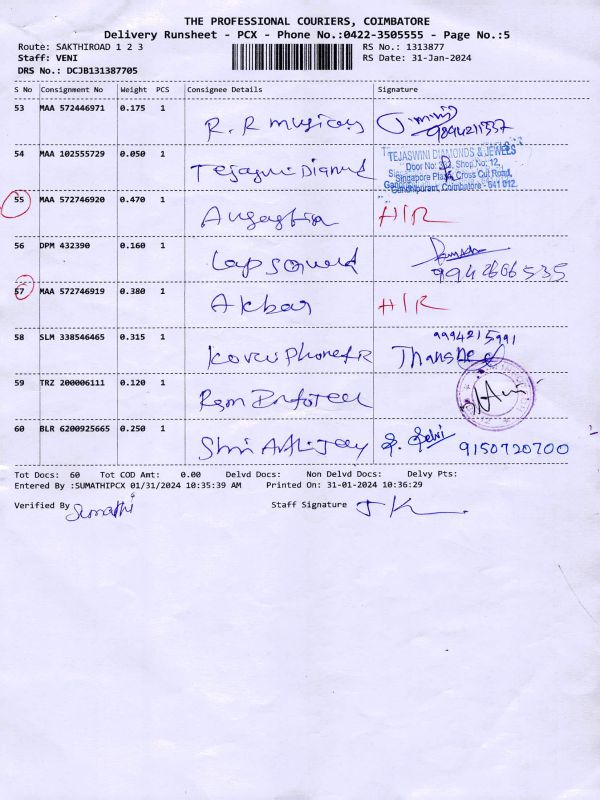 THE PROFESSIONAL COURIERS, COIMBATORE
Delivery Runsheet - PCX - Phone No.:0422-3505555 - Page No.:5
Route: SAKTHIROAD 1 2 3 RS No.: 1313877
Staff: VENI RS Date: 31-Jan-2024
DRS No.: DCJB131387705
S No Consignment No Weight PCS Consignee Details Signature
53 MAA 572446971 0.175 1
R.R musicas 9894211337
54 MAA 102555729 0.050 1
TEJASWINI DIAMONDS & JEWELS
Door No: Shop No: 12,
Singapore Plaza, Cross Cut Road,
Gandhipuram, Coimbatore - 641 012.
55 MAA 572746920 0.470 1
H/R
56 DPM 432390 0.160 1
Lapsquard 9942666535
57 MAA 572746919 0.380 1
Akbar H/R
58 SLM 338546465 0.315 1
9994215991
59 TRZ 200006111 0.120 1
Ram Infotech
60 BLR 6200925665 0.250 1
Shri 9150720700
Tot Docs: 60 Tot COD Amt: 0.00 Delvd Docs: Non Delvd Docs: Delvy Pts:
Entered By :SUMATHIPCX 01/31/2024 10:35:39 AM Printed On: 31-01-2024 10:36:29
Verified By Sumathi Staff Signature